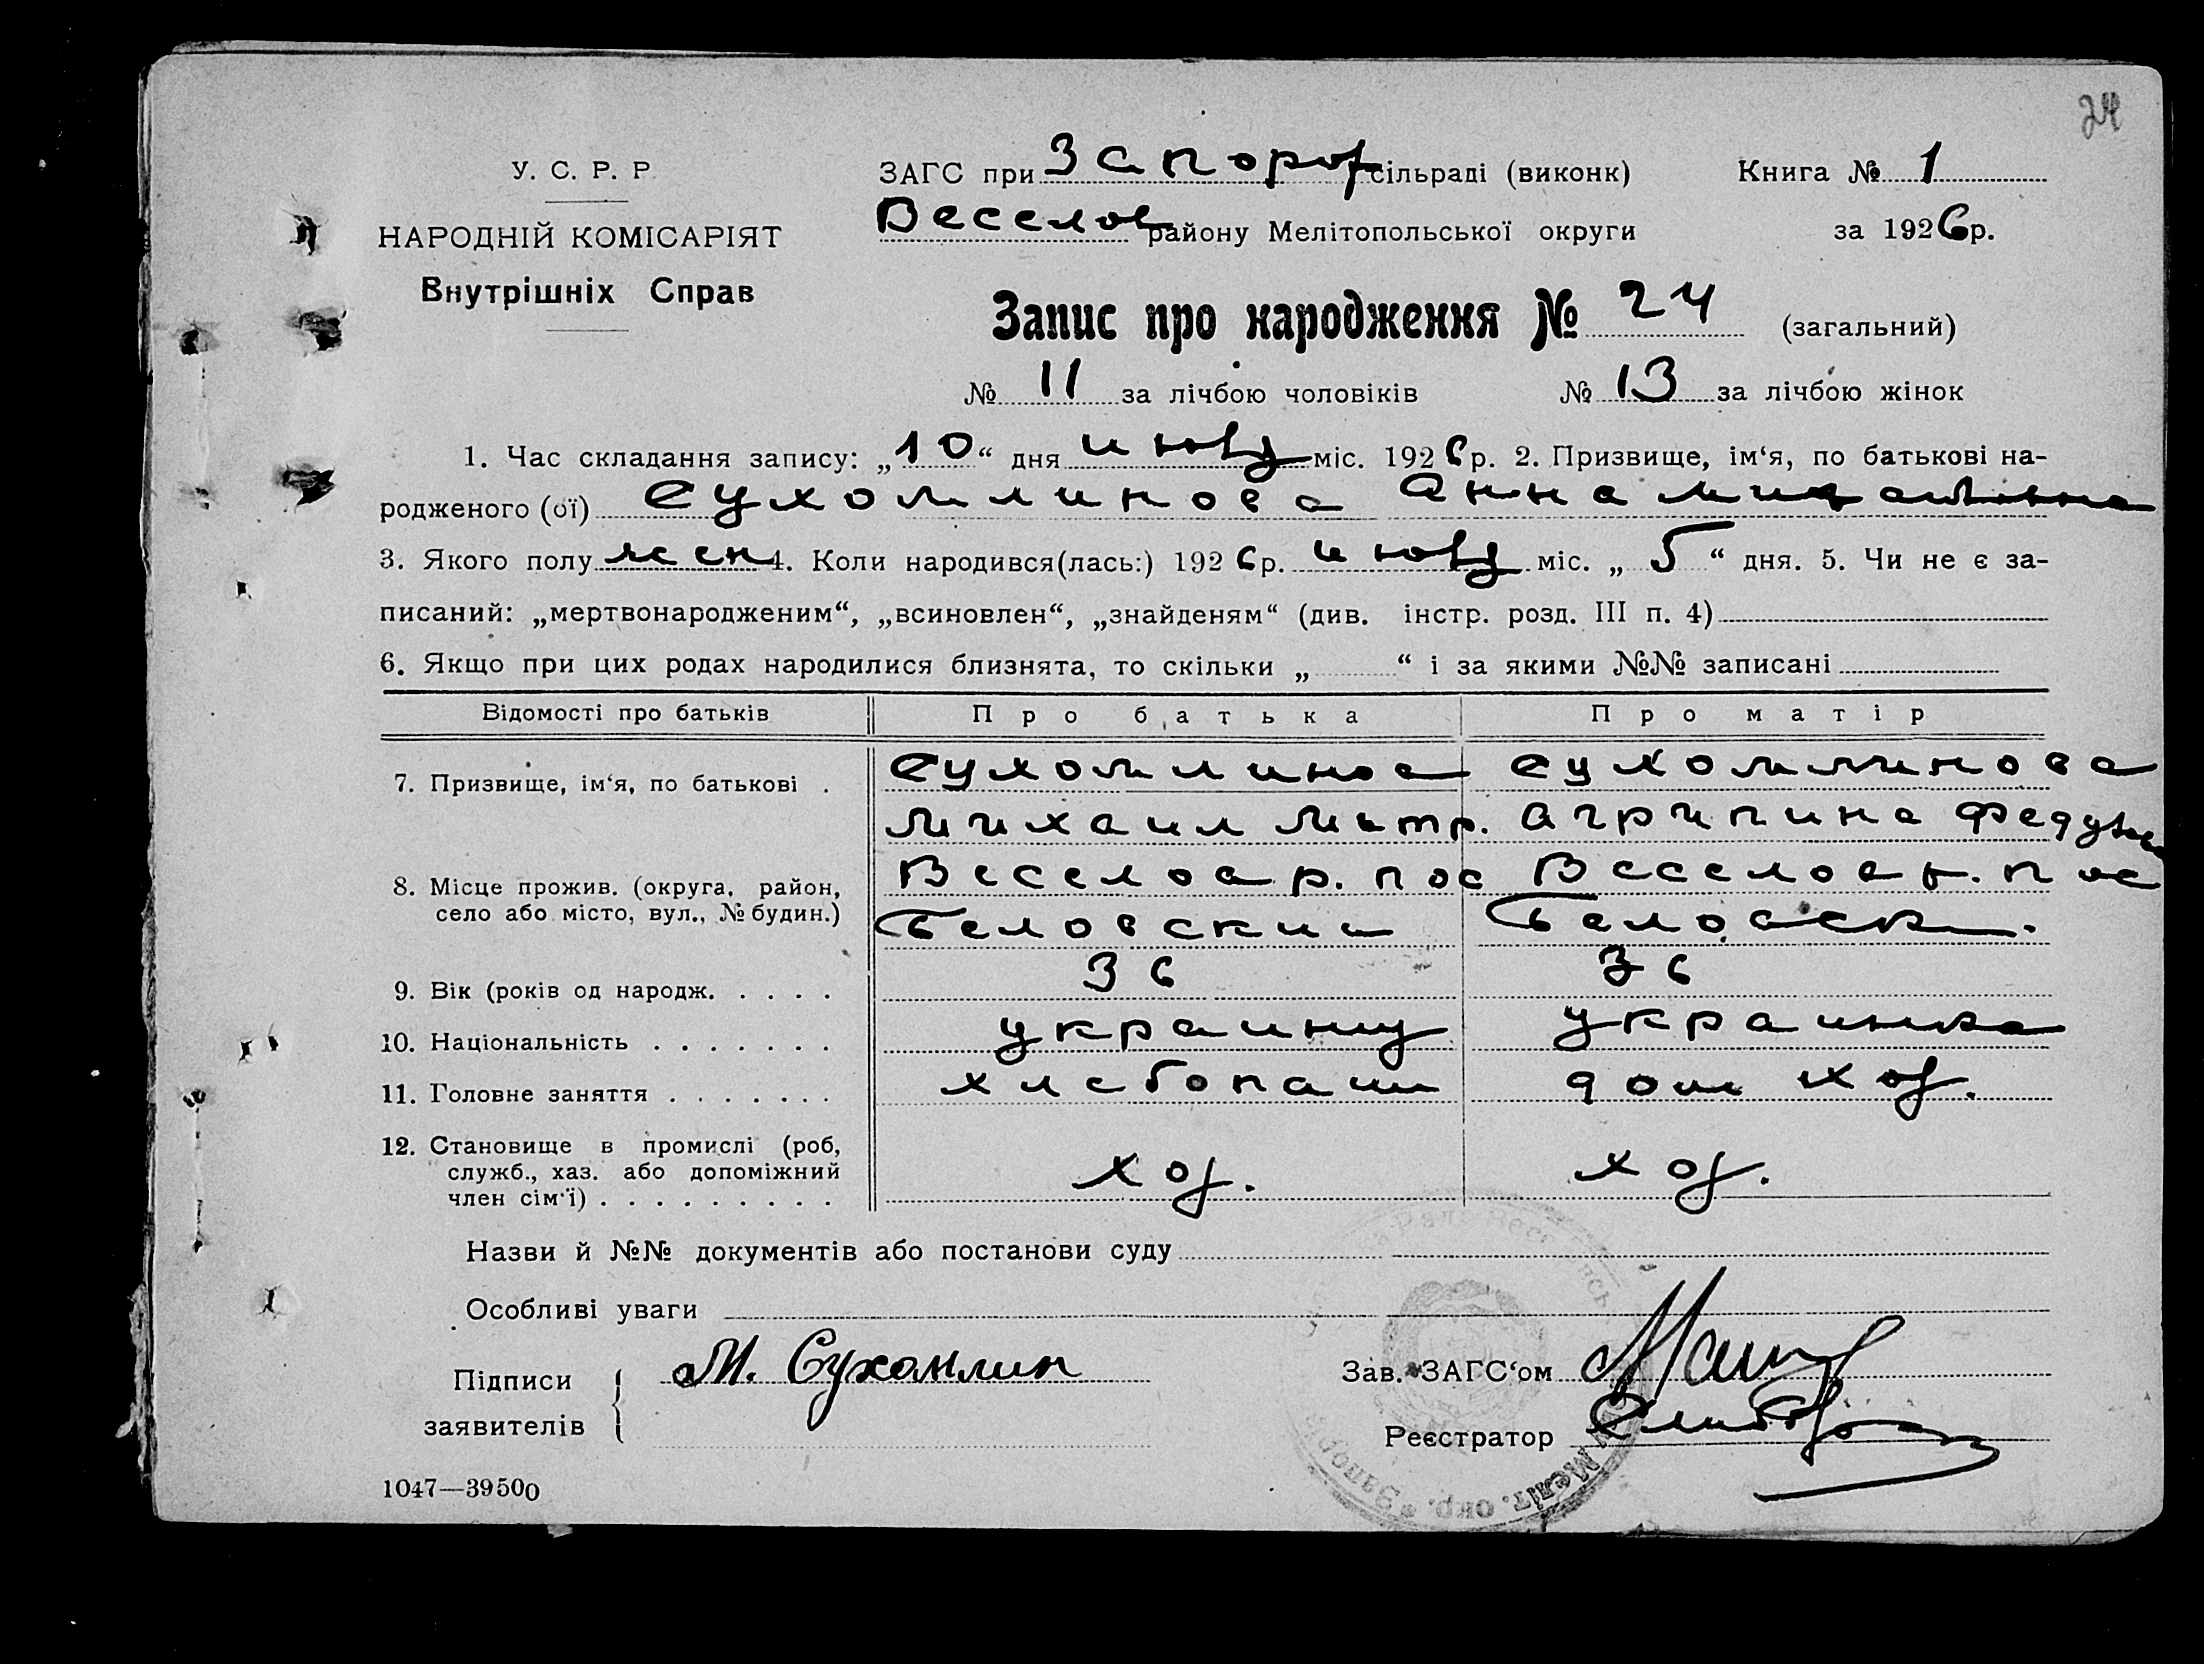 24
У. С. Р. Р
НАРОДНІЙ КОМІСАРІЯТ
Внутрішніх Справ
ЗАГС при Запорож сільраді (виконк) Книга № 1
Веселов району Мелітопольської округи за 1926 р.
Запис про народження № 24 (загальний)
№ 11 за лічбою чоловіків № 13 за лічбою жінок
1. Час складання запису: „10“ дня міс. 1926 р. 2. Призвище, ім‘я, по батькові на-
родженого (ої) Сухомлинова Анна Михайловна
3. Якого полу жен 4. Коли народився(лась:) 1926 р. міс. „5“ дня. 5. Чи не є за-
писаний: „мертвонародженим“, „всиновлен“, „знайденям“ (див. інстр. розд. III п. 4)
6. Якщо при цих родах народилися близнята, то скільки „ “ і за якими №№ записані
Відомості про батьків Про батька Про матір
7. Призвище, ім‘я, по батькові . Сухомлинов Сухомлинова
Михаил Митр. Агрипина
8. Місце прожив. (округа, район, Веселов р. пос Веселов р. пос
село або місто, вул., № будин.) Беловский Беловск.
9. Вік (років од народж. . . . . 36 36
10. Національність . . . . . . . украинц украинка
11. Головне заняття . . . . . . . хлебопаш дом хоз.
12. Становище в промислі (роб,
служб., хаз. або допоміжний хоз. хоз.
член сім‘ї) . . . . . . . . .
Назви й №№ документів або постанови суду
Особливі уваги
Підписи М. Сухомлин Зав. ЗАГС‘ом
заявителів Реєстратор
1047—39500
Меліт. окр. * Запор